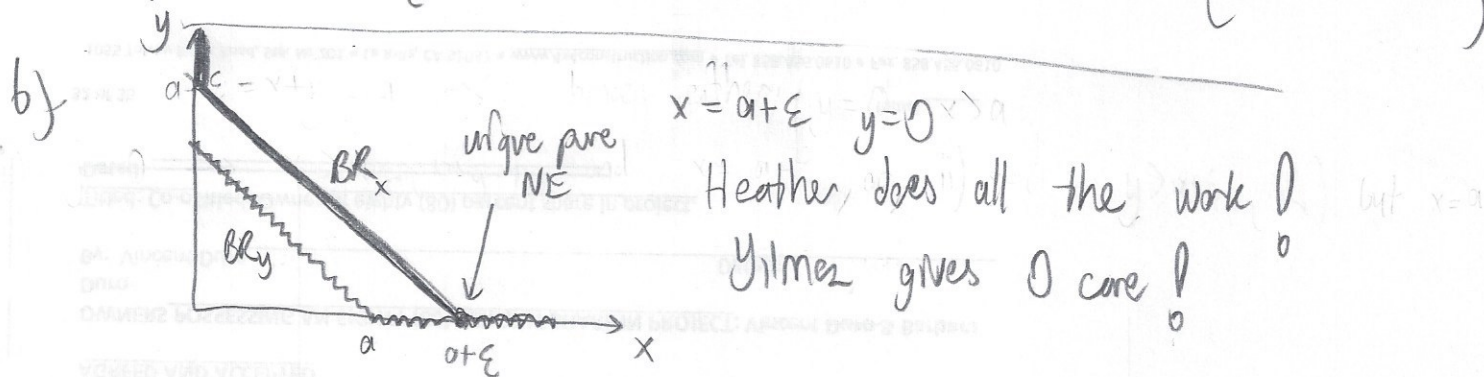 b)
y
a+ε
BR_x
BR_y
a
a+ε
x
unique pure
NE
x = a+ε y=0
Heather does all the work!
Yilmaz gives 0 care!